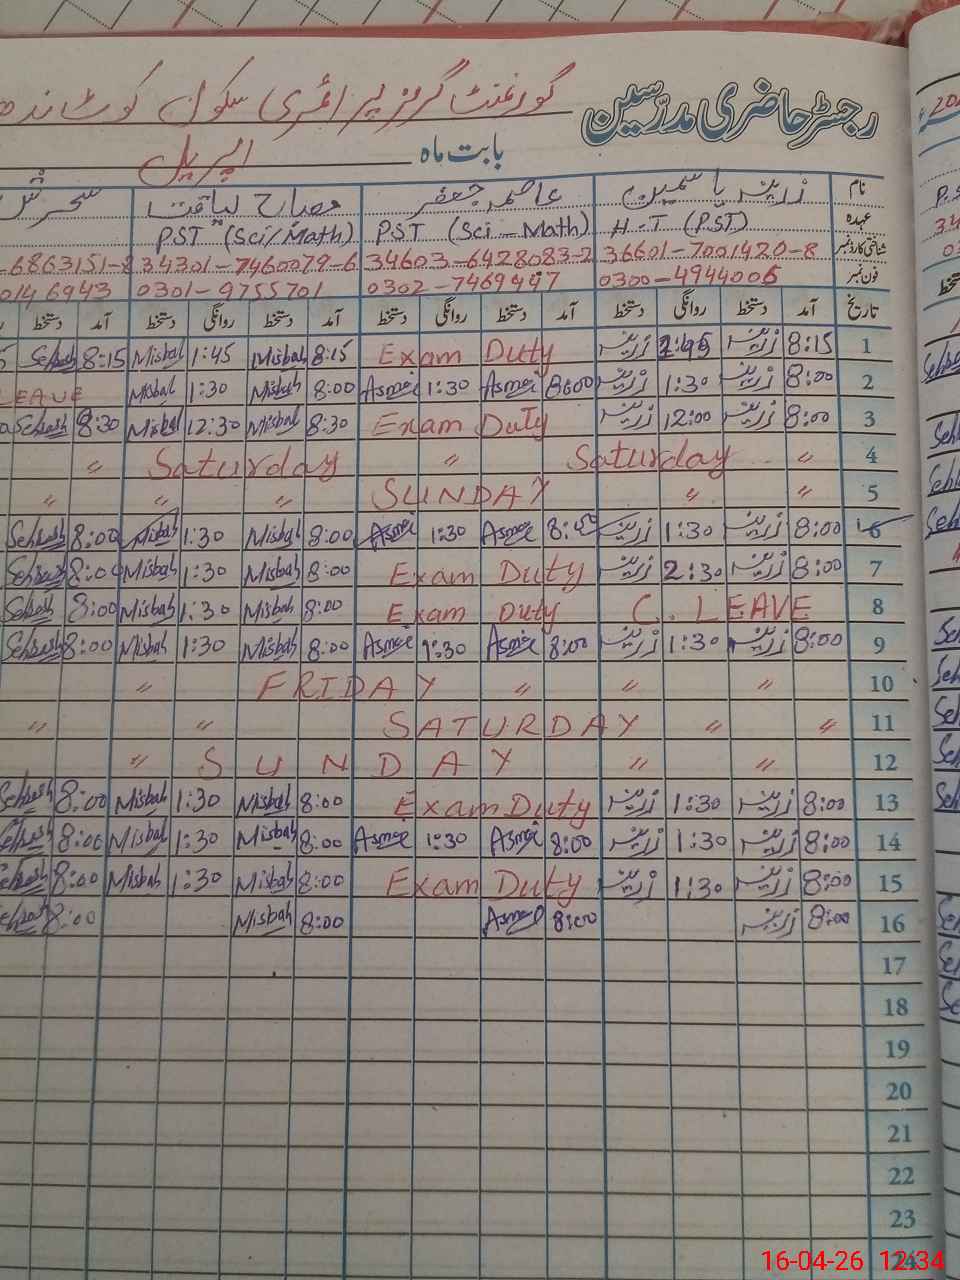 رجسٹر حاضری مدرسین گورنمنٹ گرلز پرائمری سکول کوٹ
بابت ماہ اپریل
نام زرینہ یاسمین عاصمہ جعفر مصباح لیاقت سحرش
عہدہ H.T (PST) PST (Sci-Math) PST (Sci/Math)
شناختی کارڈ نمبر 36601-7001420-8 34603-6428083-2 34301-7460079-6 -6863151-8
فون نمبر 0300-4944006 0302-7469447 0301-9755701 0146943
تاریخ آمد دستخط روانگی دستخط آمد دستخط روانگی دستخط آمد دستخط روانگی دستخط آمد دستخط
1 8:15 زرینہ 2:45 زرینہ Exam Duty 8:15 Misbah 1:45 Misbah 8:15 Sehrash
2 8:00 زرینہ 1:30 زرینہ 8:00 Asma 1:30 Asma 8:00 Misbah 1:30 Misbah LEAVE
3 8:00 زرینہ 12:00 زرینہ Exam Duty 8:30 Misbah 12:30 Misbah 8:30 Sehrash
4 " Saturday " Saturday "
5 " " SUNDAY " " "
6 8:00 زرینہ 1:30 زرینہ Asma 1:30 Asma 8:00 Misbah 1:30 Misbah 8:00 Sehrash
7 8:00 زرینہ 2:30 زرینہ Exam Duty 8:00 Misbah 1:30 Misbah 8:00 Sehrash
8 C. LEAVE Exam Duty 8:00 Misbah 1:30 Misbah 8:00 Sehrash
9 8:00 زرینہ 1:30 زرینہ 8:00 Asma 1:30 Asma 8:00 Misbah 1:30 Misbah 8:00 Sehrash
10 " " " FRIDAY "
11 " " SATURDAY " "
12 " " SUNDAY "
13 8:00 زرینہ 1:30 زرینہ Exam Duty 8:00 Misbah 1:30 Misbah 8:00 Sehrash
14 8:00 زرینہ 1:30 زرینہ 8:00 Asma 1:30 Asma 8:00 Misbah 1:30 Misbah 8:00 Sehrash
15 8:00 زرینہ 1:30 زرینہ Exam Duty 8:00 Misbah 1:30 Misbah 8:00 Sehrash
16 8:00 زرینہ 8:00 Asma 8:00 Misbah 8:00 Sehrash
17
18
19
20
21
22
23
24
16-04-26 12:34